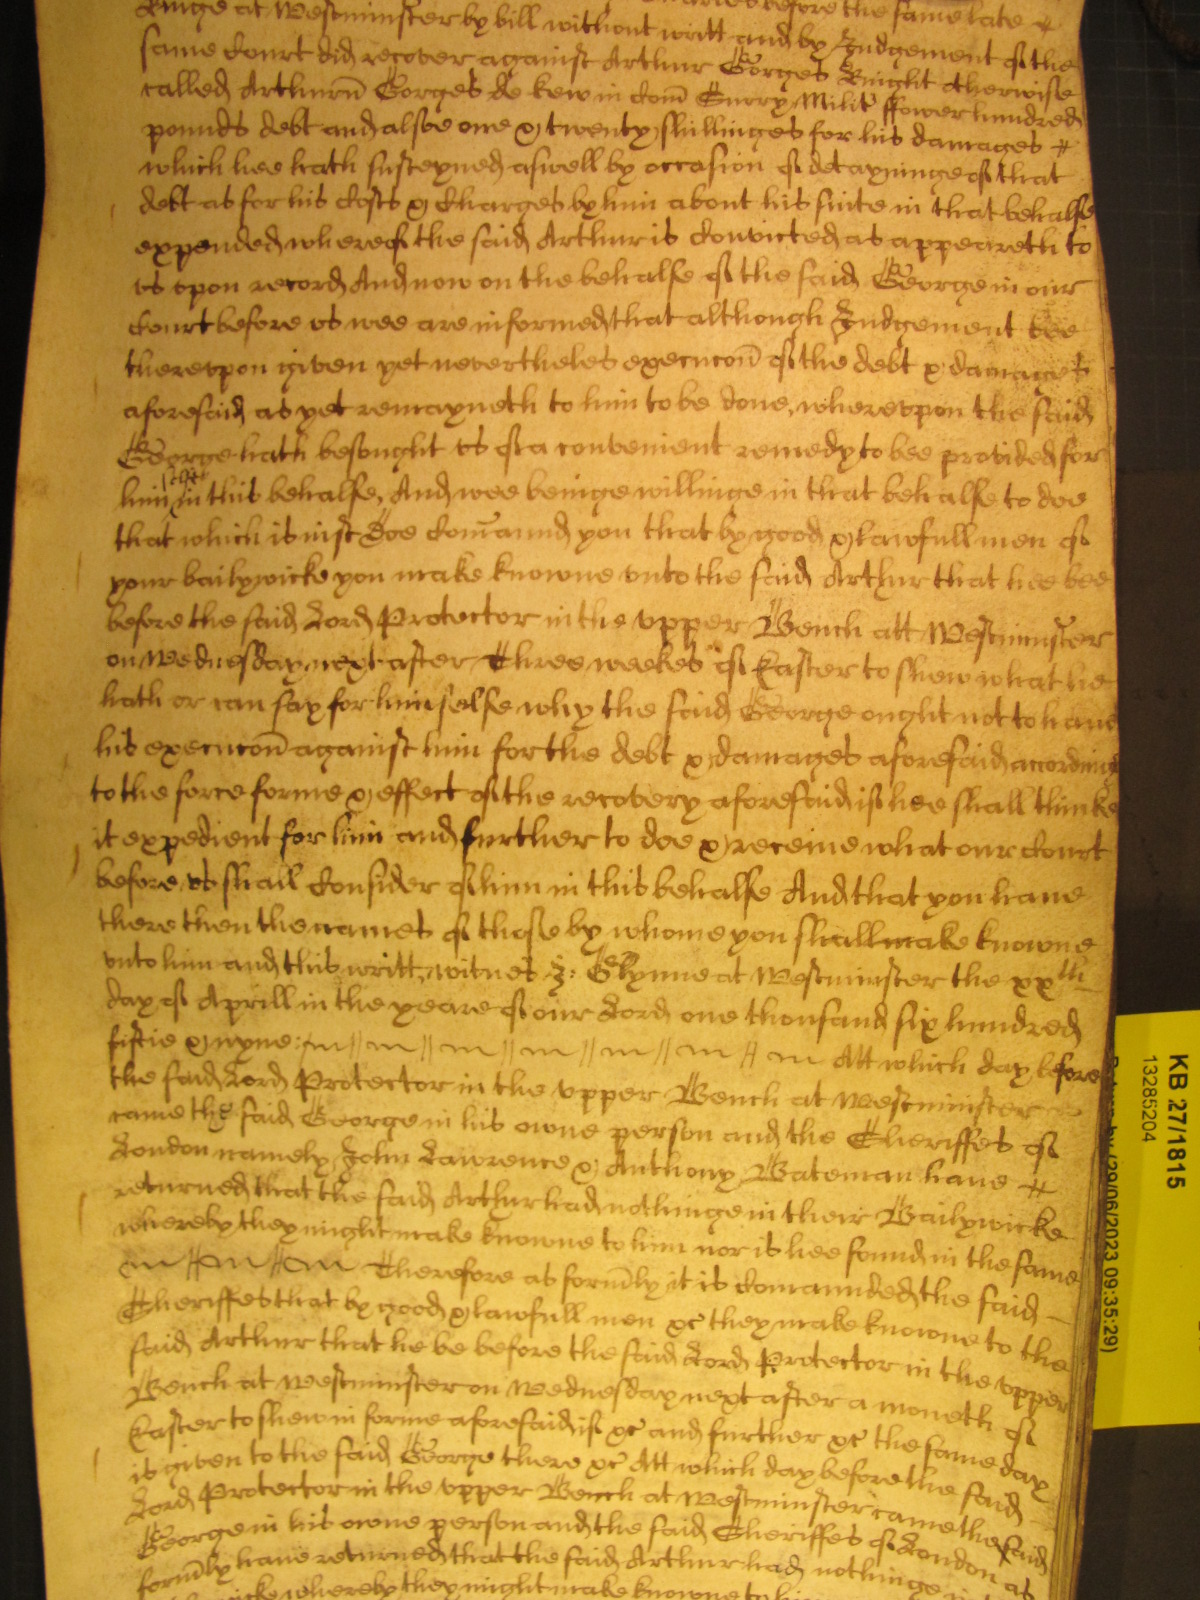 Kinge at Westminster by bill without writt and by Judgement of the
same Court did recover against Arthur Gorges Knight otherwise
called Arthurū Gorges de kew in Com̄ Surry Milit ffower hundred
pounds debt and alsoe one & twenty shillinges for his damages
which hee hath susteyned aswell by occasion of detayninge of that
debt as for his Costs & Charges by him about his suite in that behalfe
expended whereof the said Arthur is Convicted as appeareth to
us upon record And now on the behalfe of the said George in our
Court before us wee are informed that although Judgement bee
thereupon given yet nevertheles execucon̄ of the debt & damages
aforesaid as yet remayneth to him to be done, whereupon the said
George hath besought us of a convenient remedy to bee provided for
him in this behalfe, And wee beinge willinge in that behalfe to doe
that which is iust Doe Com̄aund you that by good & lawfull men of
your bailywicke you make knowne unto the said Arthur that hee bee
before the said Lord Protector in the upper Bench att Westminster
on Wednesday next after Three weekes of Easter to shew what he
hath or can say for himselfe why the said George ought not to haue
his execucon̄ against him for the debt & damages aforesaid according
to the force forme & effect of the recovery aforesaid if hee shall thinke
it expedient for him and further to doe & receiue what our Court
before us shall Consider of him in this behalfe And that you haue
there then the names of those by whome you shall make knowne
unto him and this writt, witnes J: Glynne at Westminster the xxth
day of Aprill in the yeare of our Lord one thousand six hundred
fiftie & nyne: Att which day before
the said Lord Protector in the upper Bench at Westminster
came the said George in his owne person and the Sheriffes of
London namely John Lawrence & Anthony Bateman haue
returned that the said Arthur had nothinge in their Bailywicke
whereby they might make knowne to him nor is hee found in the same
Therefore as form̄ly it is Comaunded the said
Sheriffes that by good & lawfull men &c they make knowne to the
said Arthur that he be before the said Lord Protector in the upper
Bench at Westminster on Wednesday next after a moneth of
Easter to shew in forme aforesaid if &c and further &c the same day
is given to the said George there &c Att which day before the said
Lord Protector in the upper Bench at Westminster came the said
George in his owne person and the said Sheriffes of London as
form̄ly haue returned that the said Arthur had nothinge
whereby they might make knowne to
KB 27/1815
13285204
(29/06/2023 09:35:29)